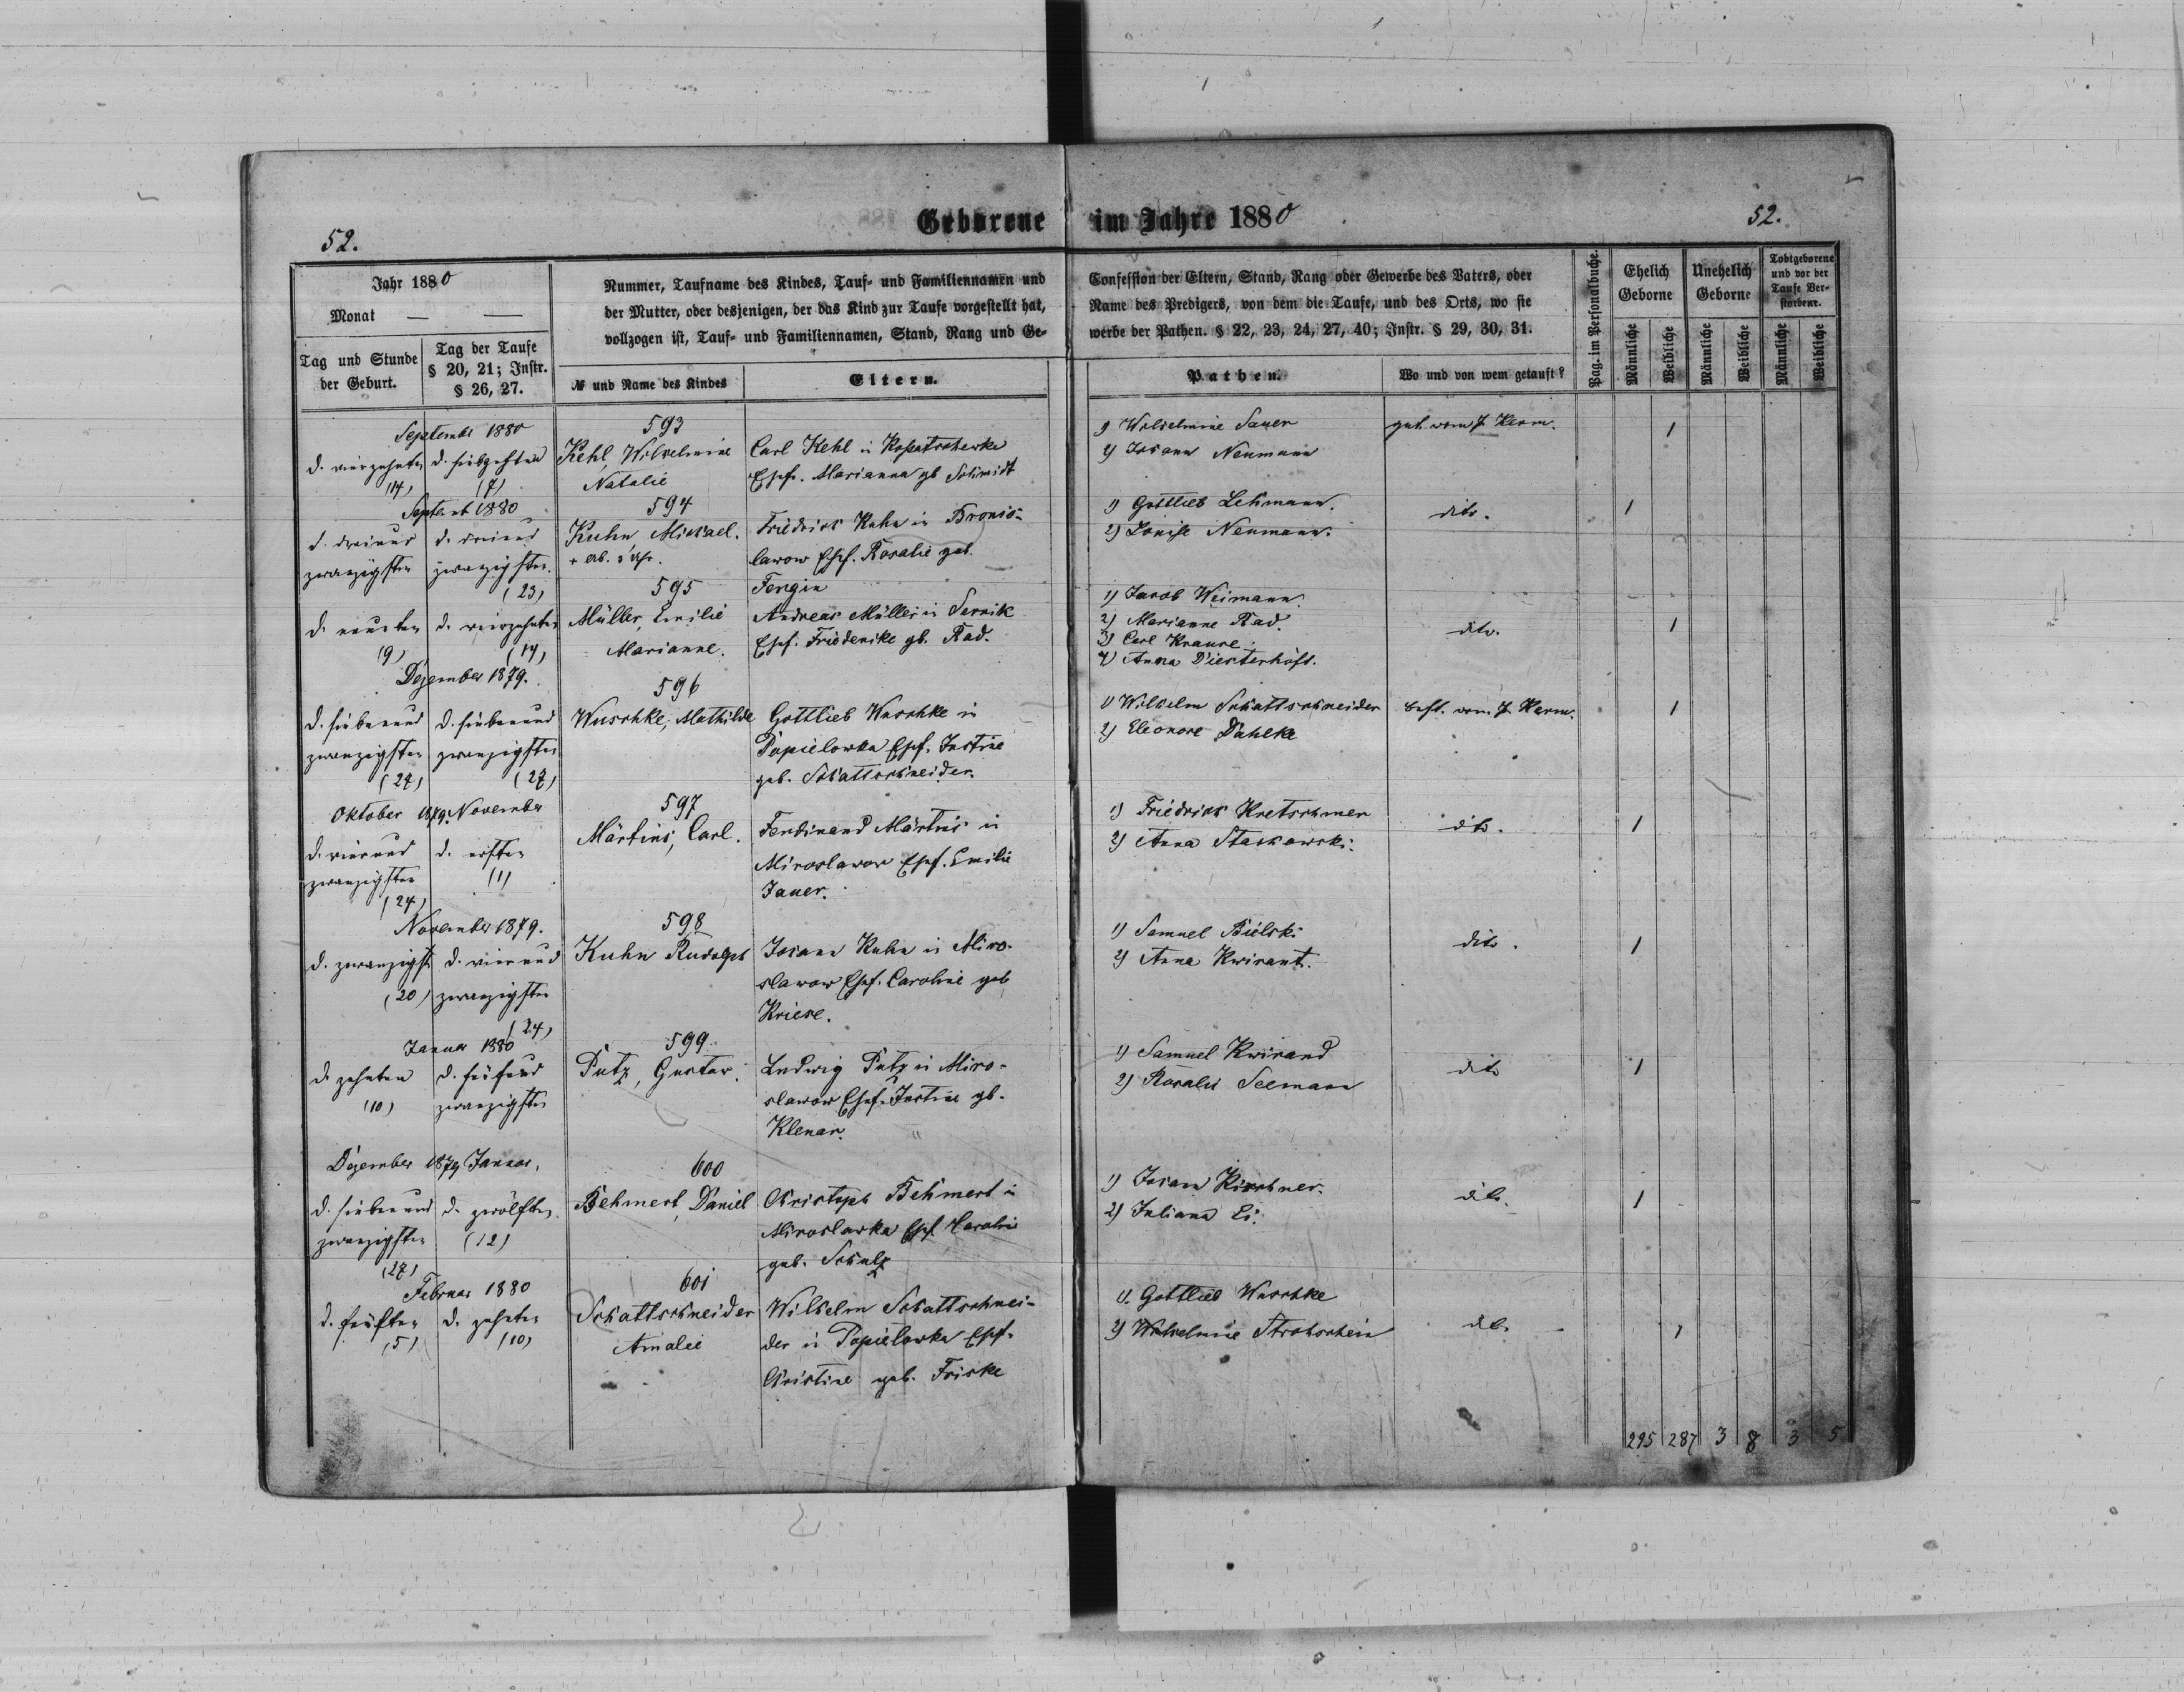 Geborene im Jahre 1880
52.
52.
Jahr 1880
Monat — —
Tag und Stunde der Geburt.
Tag der Taufe § 20, 21; Instr. § 26, 27.
Nummer, Taufname des Kindes, Tauf- und Familiennamen und
der Mutter, oder desjenigen, der das Kind zur Taufe vorgestellt hat,
vollzogen ist, Tauf- und Familiennamen, Stand, Rang und Ge-
№ und Name des Kindes
Eltern.
Confession der Eltern, Stand, Rang oder Gewerbe des Vaters, oder
Name des Predigers, von dem die Taufe, und des Orts, wo sie
werbe der Pathen. § 22, 23, 24, 27, 40; Instr. § 29, 30, 31.
Pathen.
Wo und von wem getauft?
Pag. im Personalbuche.
Ehelich Geborne
Unehelich Geborne
Todtgeborene und vor der Taufe Verstorbene.
Männliche
Weibliche
Männliche
Weibliche
Männliche
Weibliche
September 1880
593
d. vierzehnten
(14)
(7)
Kehl, Wilhelmine
Natalie
Carl Kehl in
Ehef. Marianna gb Schmidt
1) Wilhelmine Sauer
2) Johann Neumann
1
Septemb 1880
594
d. dreiund
zwanzigsten
d. dreiund
zwanzigsten
(23)
Kuhn, Michael.
Friedrich Kuhn in Bronis-
lawow Ehef. Rosalie geb.
Fengin
1) Gottlieb Lehmann.
2) Louise Neumann.
dito.
1
595
d. neunten
(9)
d. vierzehnten
(14)
Müller, Emilie
Marianne.
Andreas Müller in Sernik
Ehef. Friederike gb. Rad.
1) Jacob Weimann.
2) Marianne Rad.
3) Carl Krause.
4) Anna Diesterhöft.
dito.
1
Dezember 1879.
596
d. siebenund
zwanzigsten
(27)
d. siebenund
zwanzigsten
(27)
Wuschke, Mathilde
Gottlieb Wuschke in
Popielowka Ehef. Justine
geb. Schattschneider.
1) Wilhelm Schattschneider
2) Eleonore Dahlke
1
Oktober 1879. November
597
d. vierund
zwanzigsten
(24)
d. ersten
(1)
Märtins, Carl.
Ferdinand Märtins in
Miroslawow Ehef. Emilie
Jauer.
1) Friedrich Kretschmer
2) Anna Stachowski.
dito.
1
November 1879.
598
d. zwanzigst
(20)
d. vierund
zwanzigsten
(24)
Kuhn Rudolph
Johann Kuhn in Miro-
slawow Ehef. Caroline geb
Kriese.
1) Samuel Bielski
2) Anna Kwirant.
dito.
1
Januar 1880
599
d. zehnten
(10)
d. fünfund
zwanzigsten
Putz, Gustav.
Ludwig Putz in Miro-
slawow Ehef. Justine gb.
Klenar.
1) Samuel Kwirand
2) Rosalie Seemann
dito
1
Dezember 1879 Januar,
600
d. siebenund
zwanzigsten
(27)
d. zwölften
(12)
Behmert, Daniel
Christoph Behmert in
Miroslawka Ehef. Caroline
geb. Schulz
1) Johann Kirschner.
2) Juliana Li.
dito.
1
Februar 1880
601
d. fünften
(5)
d. zehnten
(10)
Schattschneider
Amalie
Wilhelm Schattschnei-
der in Popielowka Ehef.
Christine geb. Friske
1. Gottlieb Wuschke
2) Wilhelmine Strohschein
dito.
1
295 287 3 8 3 5